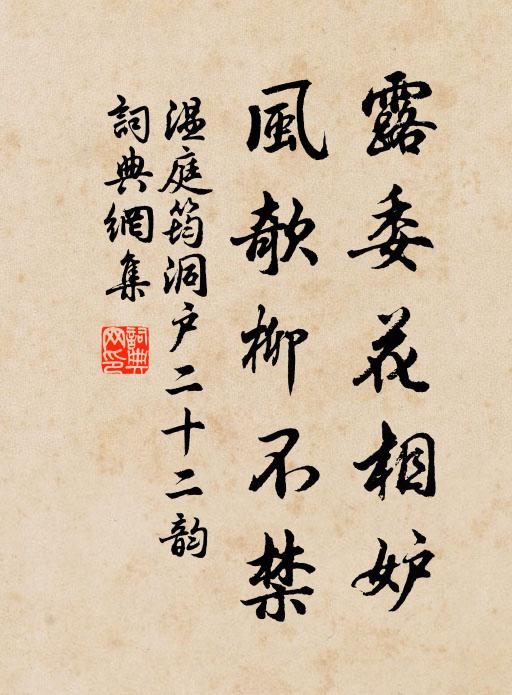 露委花相妒
風欹柳不禁
温庭筠洞户二十二韵
詞典網集
詞典
网印